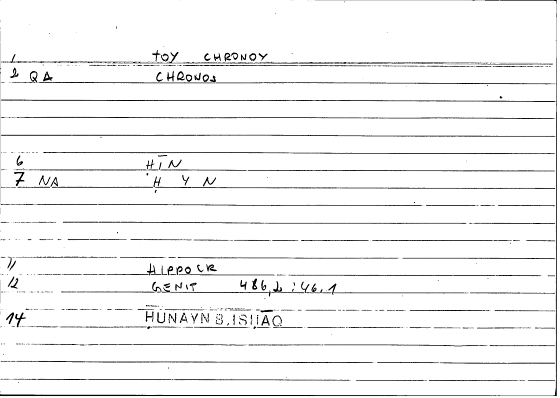 1 TOY CHRONOY
2 QA CHRONOS
6 ḤĪN
7 NA Ḥ Y N
11 HIPPOCR
12 GENIT 486,2:46.1
14 ḤUNAYN B.ISḤĀQ